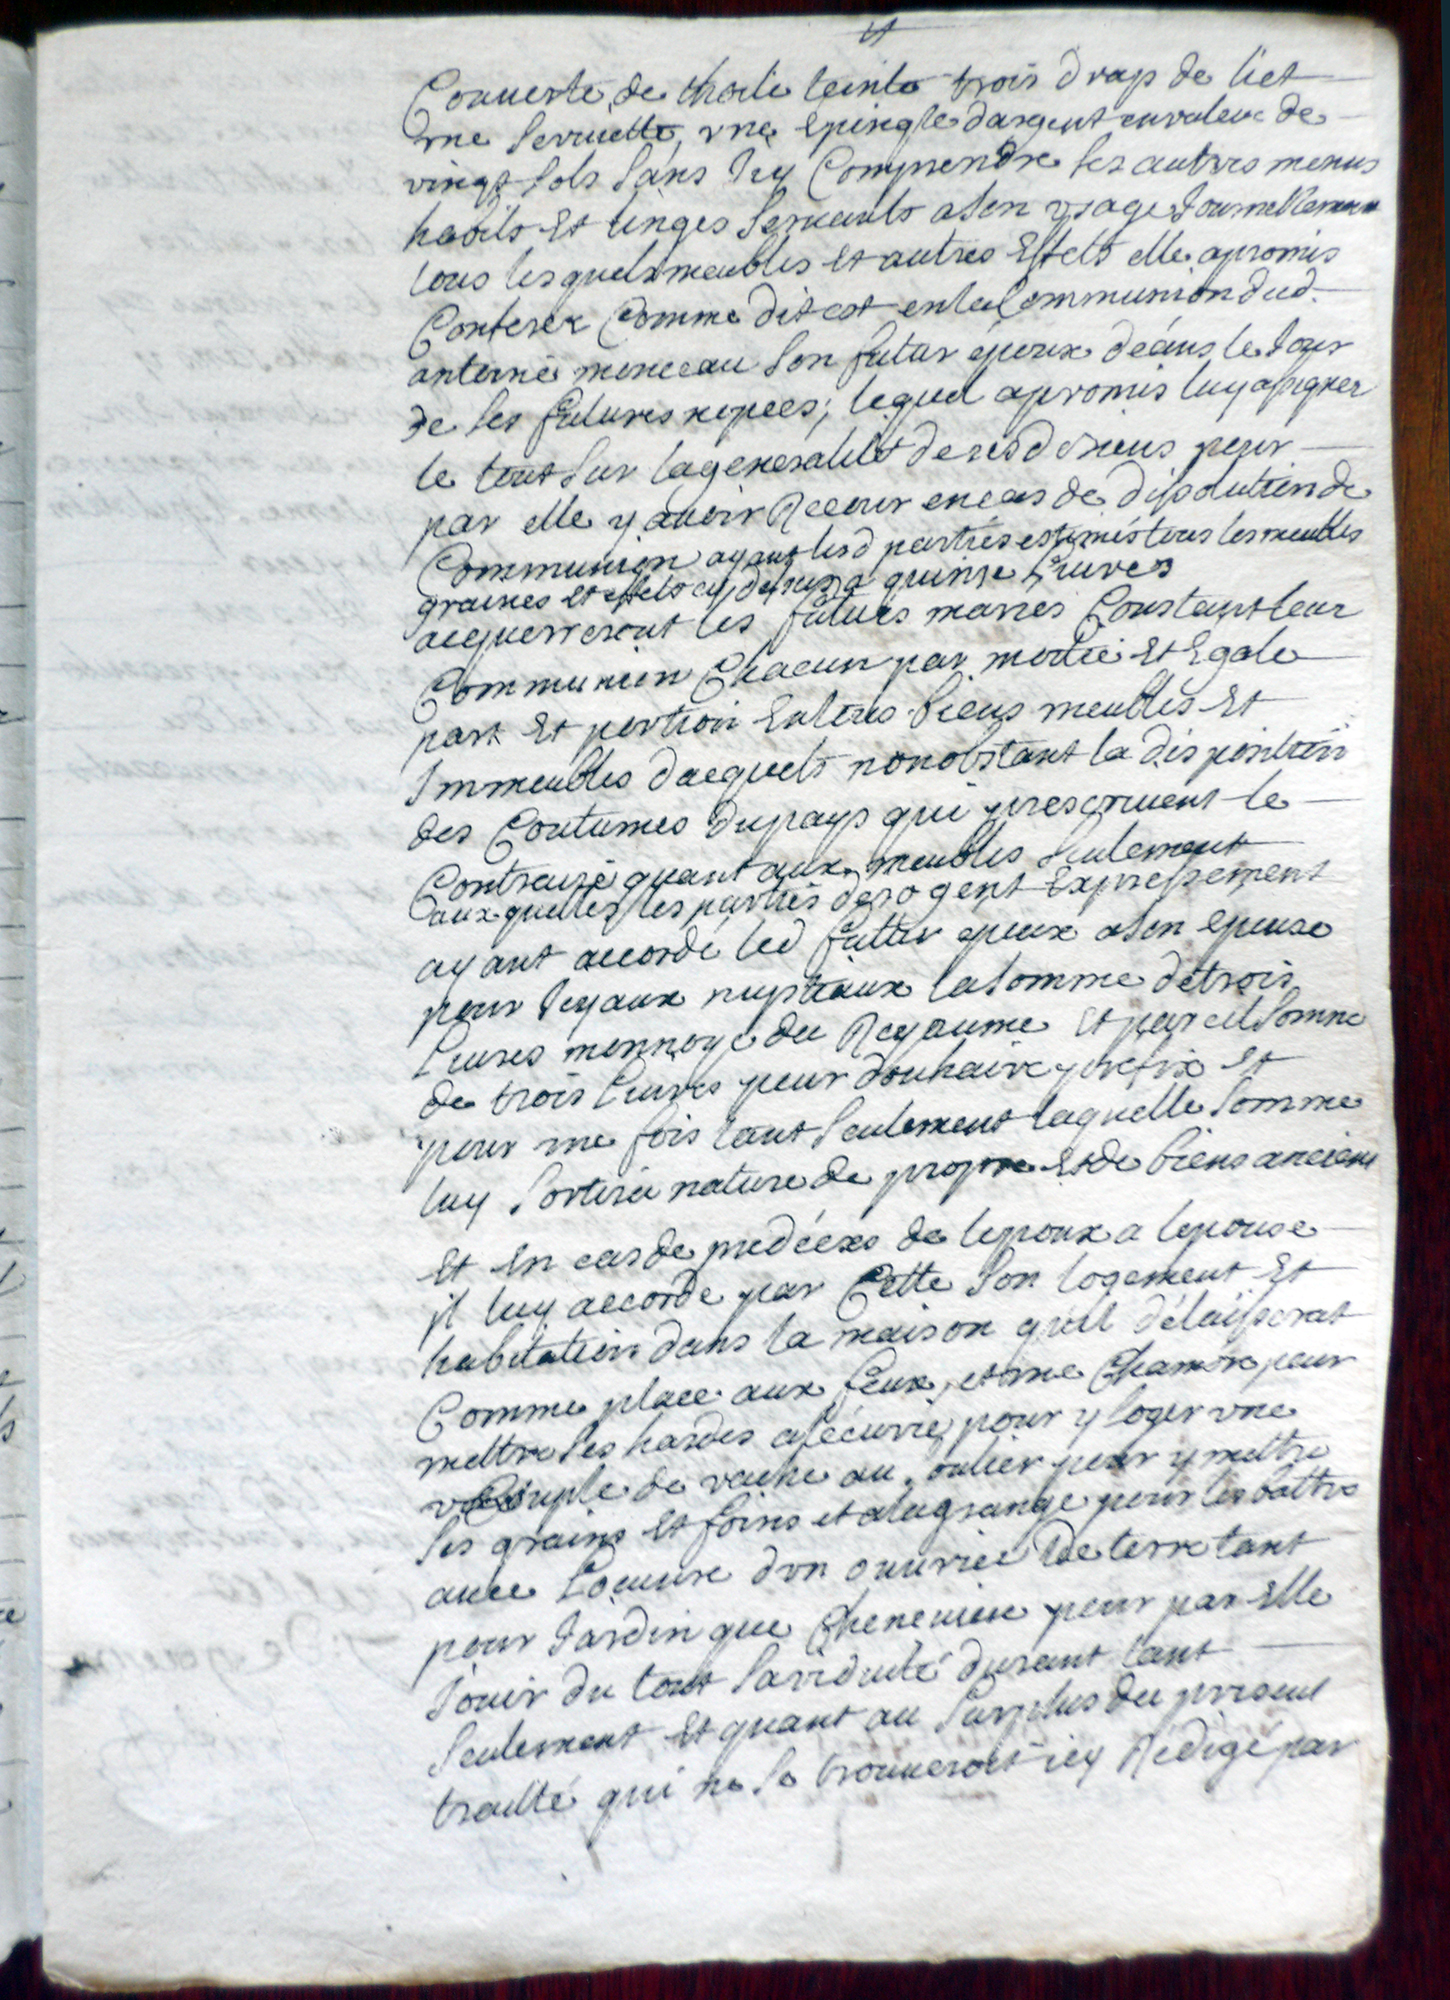 Couuerte de thoile teinte trois draps de liet
vne seruiette vne epingle dargent en valeur de
vingt sols sans icy Comprendre ses autres menus
habits et linges seruants a son vsage Journellement
tous lesquels meubles et autres effets elle a promis
Conferer Comme dit est en la Communion dud.
antoine monceau son futur epoux deans le Jour
de ses futures nopces; lequel a promis luy asigner
le tout sur la generalité de sesd biens pour
par elle y auoir Recour en cas de disolution de
Communion ayant lesd parties estimés tous les meubles
graines et effets cy desus a quinse Liures
acquerreront les futurs mariés Constant leur
Communion Chacun par moitié et Egale
part et portion en leurs biens meubles et
Immeubles dacquets nonobstant la disposition
des Coutumes du pays qui prescriuent le
Contraire quant aux meubles seulement
auxquelles les parties derogent Expressement
ayant accordé led futur epoux a son epouse
pour Joyaux nuptiaux la somme de trois
Liures monnoye du Royaume et pareil somme
de trois Liures pour douhaire prefix et
pour vne fois tant seulement laquelle somme
luy sortira nature de propre et de biens anciens
et en cas de predécés de lepoux a lepouse
jl luy accorde par Cette son logement et
habitation dans la maison quil délaisserat
Comme place aux feux, et vne Chambre pour
mettre ses hardes a lécurie pour y loger vne
Couple de vache au solier pour y mettre
ses grains et foins et a la grange pour les battre
auec Locuure dvn ouurier de terre tant
pour Jardin que Cheneuiere pour par elle
Jouir du tout sa viduité durant tant
seulement et quant au surplus du present
traitté qui ne se trouueroit icy Rédigé par